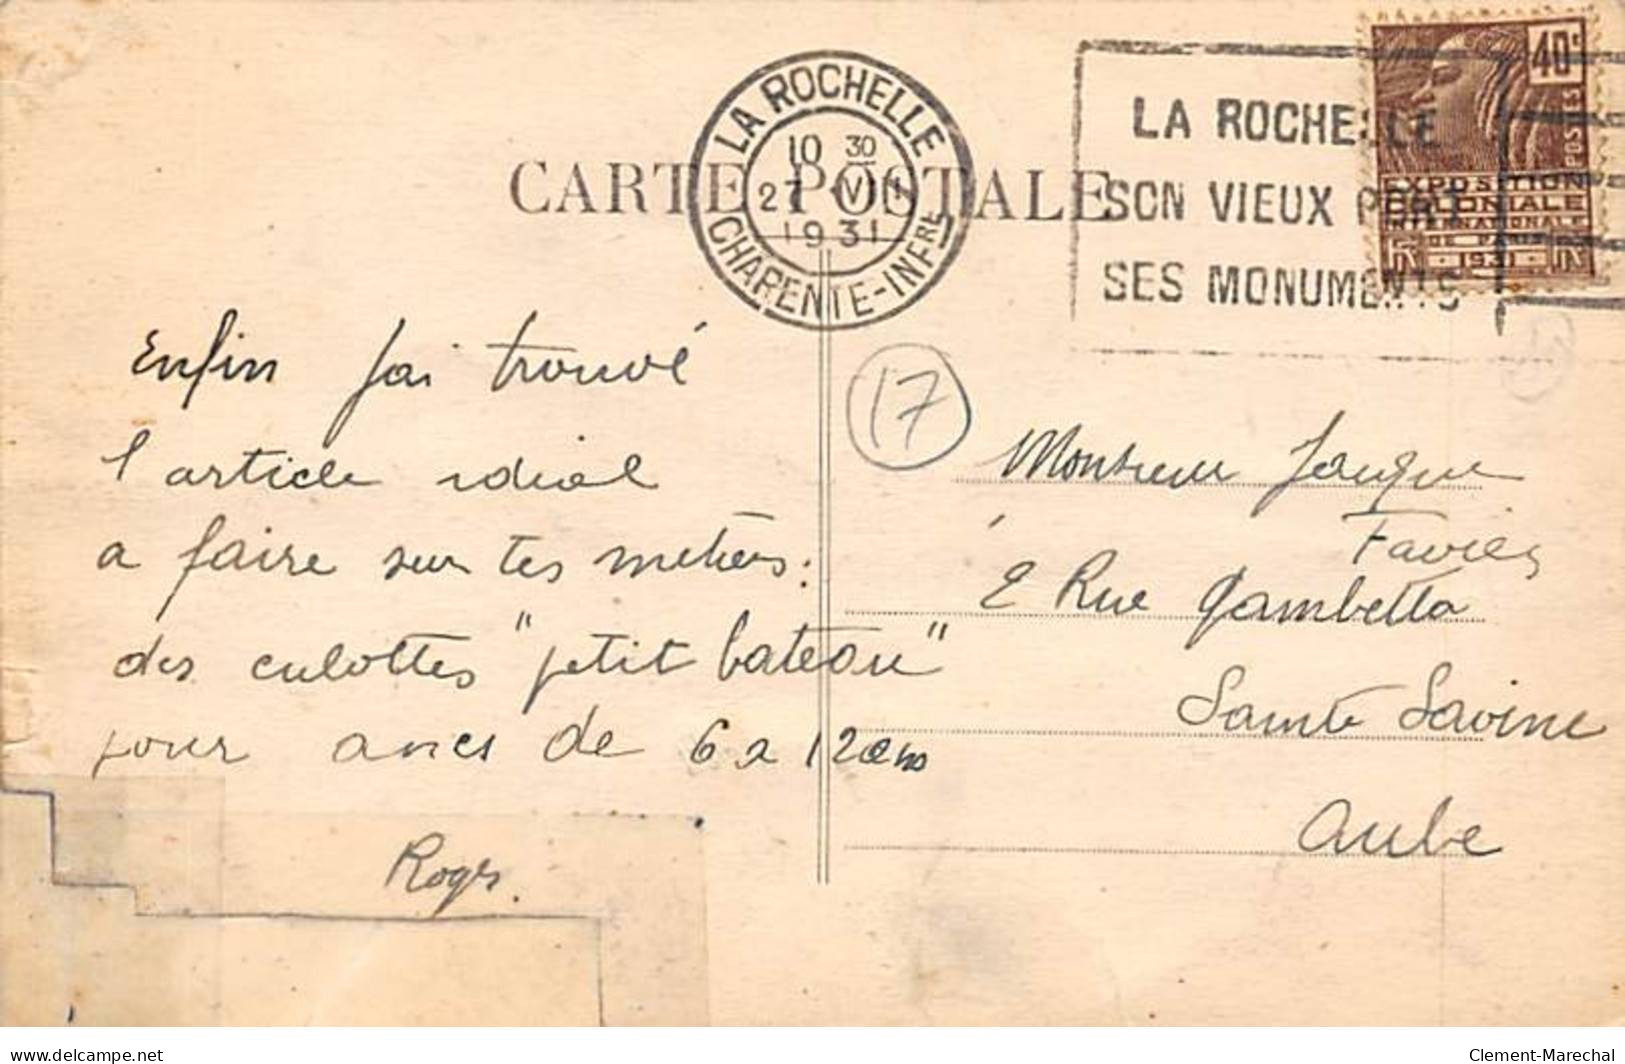 CARTE POSTALE
LA ROCHELLE
10 30
27 VII
1931
CHARENTE-INFRE
LA ROCHELLE
SON VIEUX PORT
SES MONUMENTS
40c
POSTES
EXPOSITION
COLONIALE
INTERNATIONALE
DE PARIS
1931
17
Enfin j'ai trouvé
l'article idial
a faire sur tes metiers:
des culottes "petit bateau"
pour ances de 6 a 12 ans
Roger.
Monsieur Jacque
Favier
2 Rue Gambetta
Sainte Savine
Aube
delcampe.net
Clement-Marechal